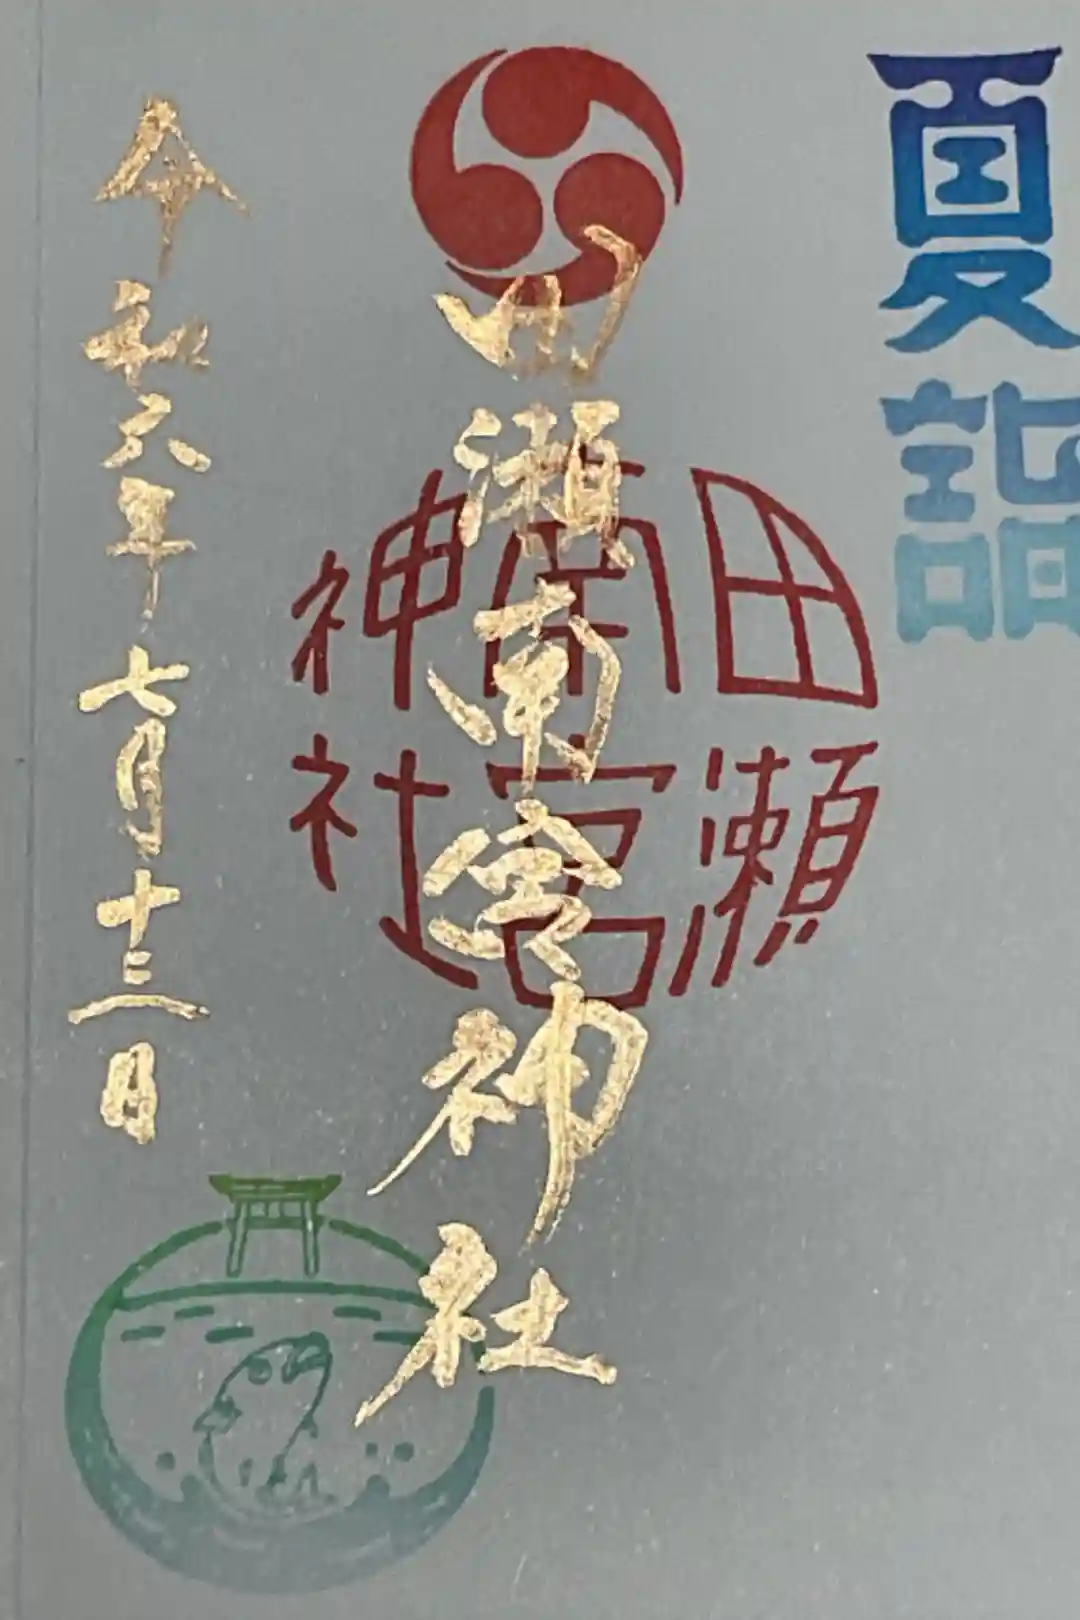 夏詣
田瀬南宮神社
田瀬
南宮
神社
令和六年七月十三日